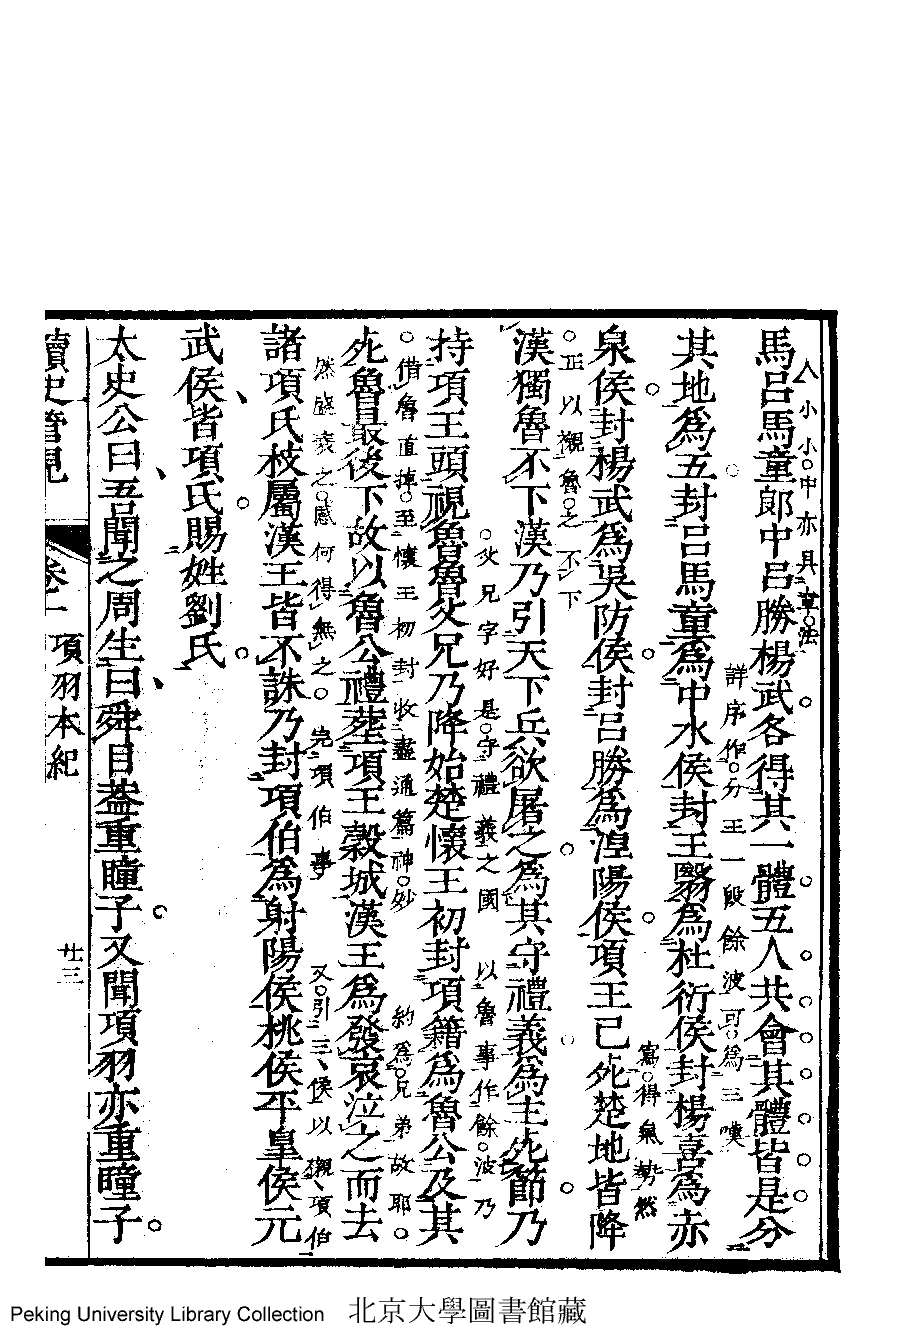 馬呂馬童郎中呂勝楊武各得其一體五人共會其體皆是分
小小中亦具章法
其地爲五封呂馬童爲中水侯封王翳爲杜衍侯封楊喜爲赤
詳序作分王一段餘波可爲三嘆
泉侯封楊武爲吳防侯封呂勝爲湼陽侯項王已死楚地皆降
寫得氣勢然
漢獨魯不下漢乃引天下兵欲屠之爲其守禮義爲主死節乃
正以襯魯之不下
持項王頭視魯魯父兄乃降始楚懷王初封項籍爲魯公及其
父兄字好是守禮義之國
以魯事作餘波乃
死魯最後下故以魯公禮葬項王穀城漢王爲發哀泣之而去
借魯直掉至懷王初封收盡通篇神妙
約爲兄弟故耶
諸項氏枝屬漢王皆不誅乃封項伯爲射陽侯桃侯平皐侯元
然盛衰之感何得無之
完項伯事
又引三侯以襯項伯
武侯皆項氏賜姓劉氏
太史公曰吾聞之周生曰舜目葢重瞳子又聞項羽亦重瞳子
讀史管見
卷一
項羽本紀
廿三
Peking University Library Collection 北京大學圖書館藏